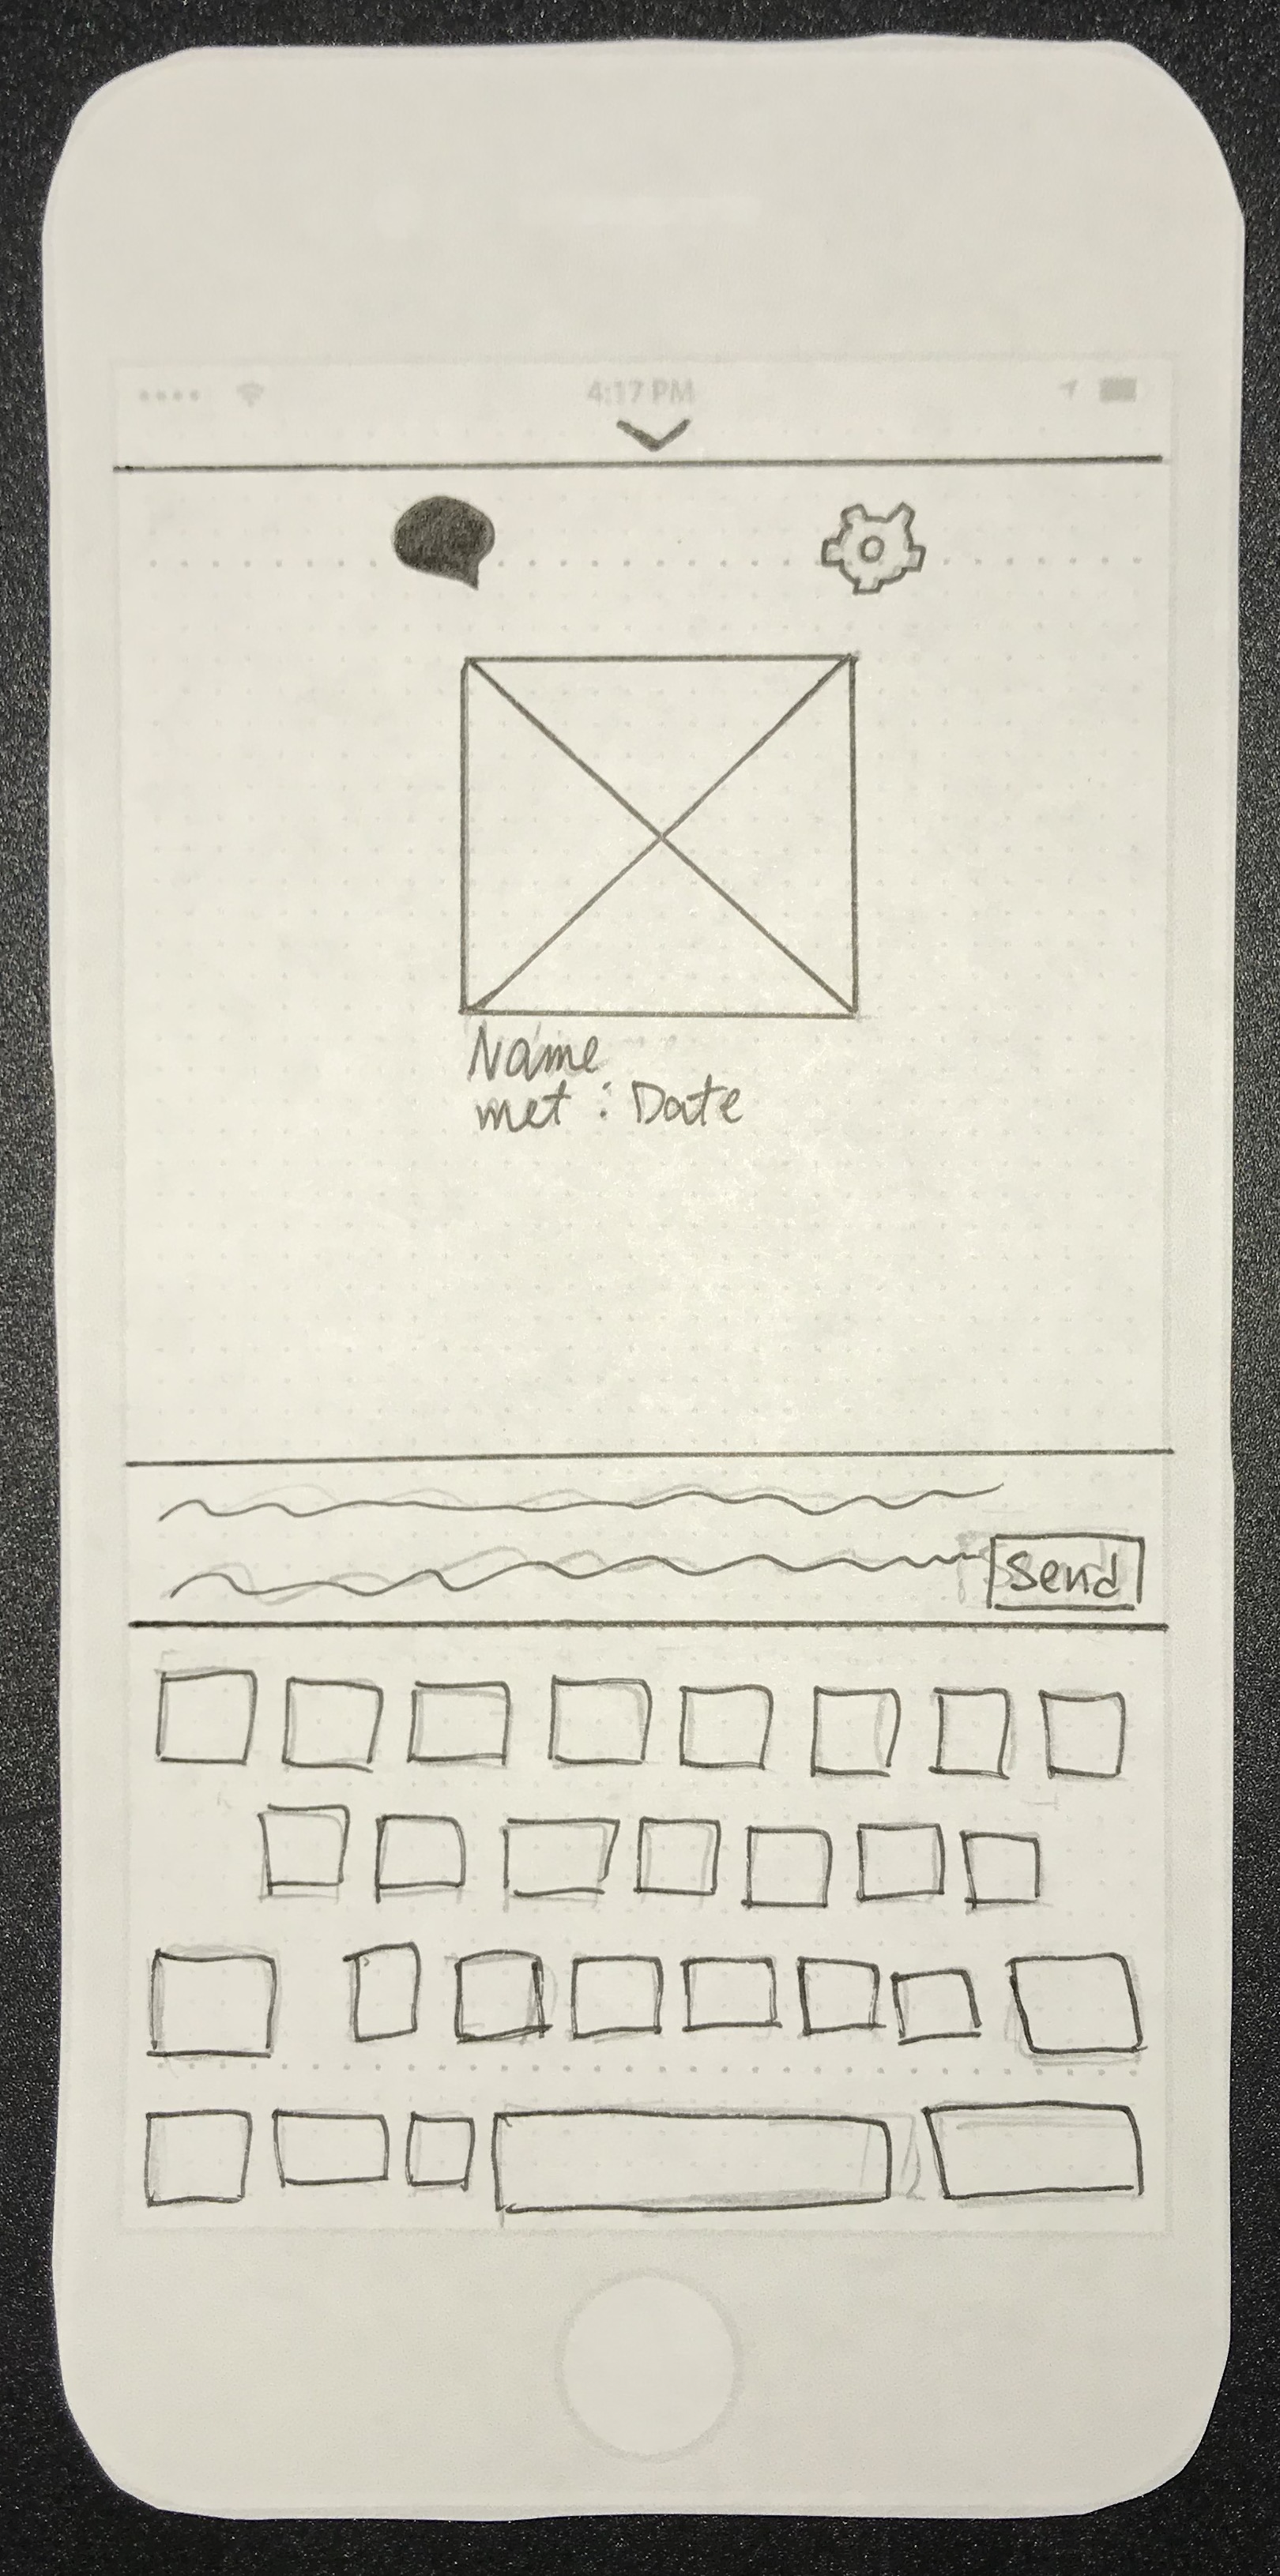 4:17 PM
Name
met : Date
Send